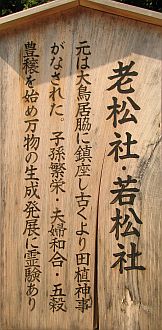 老松社・若松社
元は大鳥居脇に鎮座し古くより田植神事
がなされた。子孫繁栄・夫婦和合・五穀
豊穣を始め万物の生成発展に霊験あり